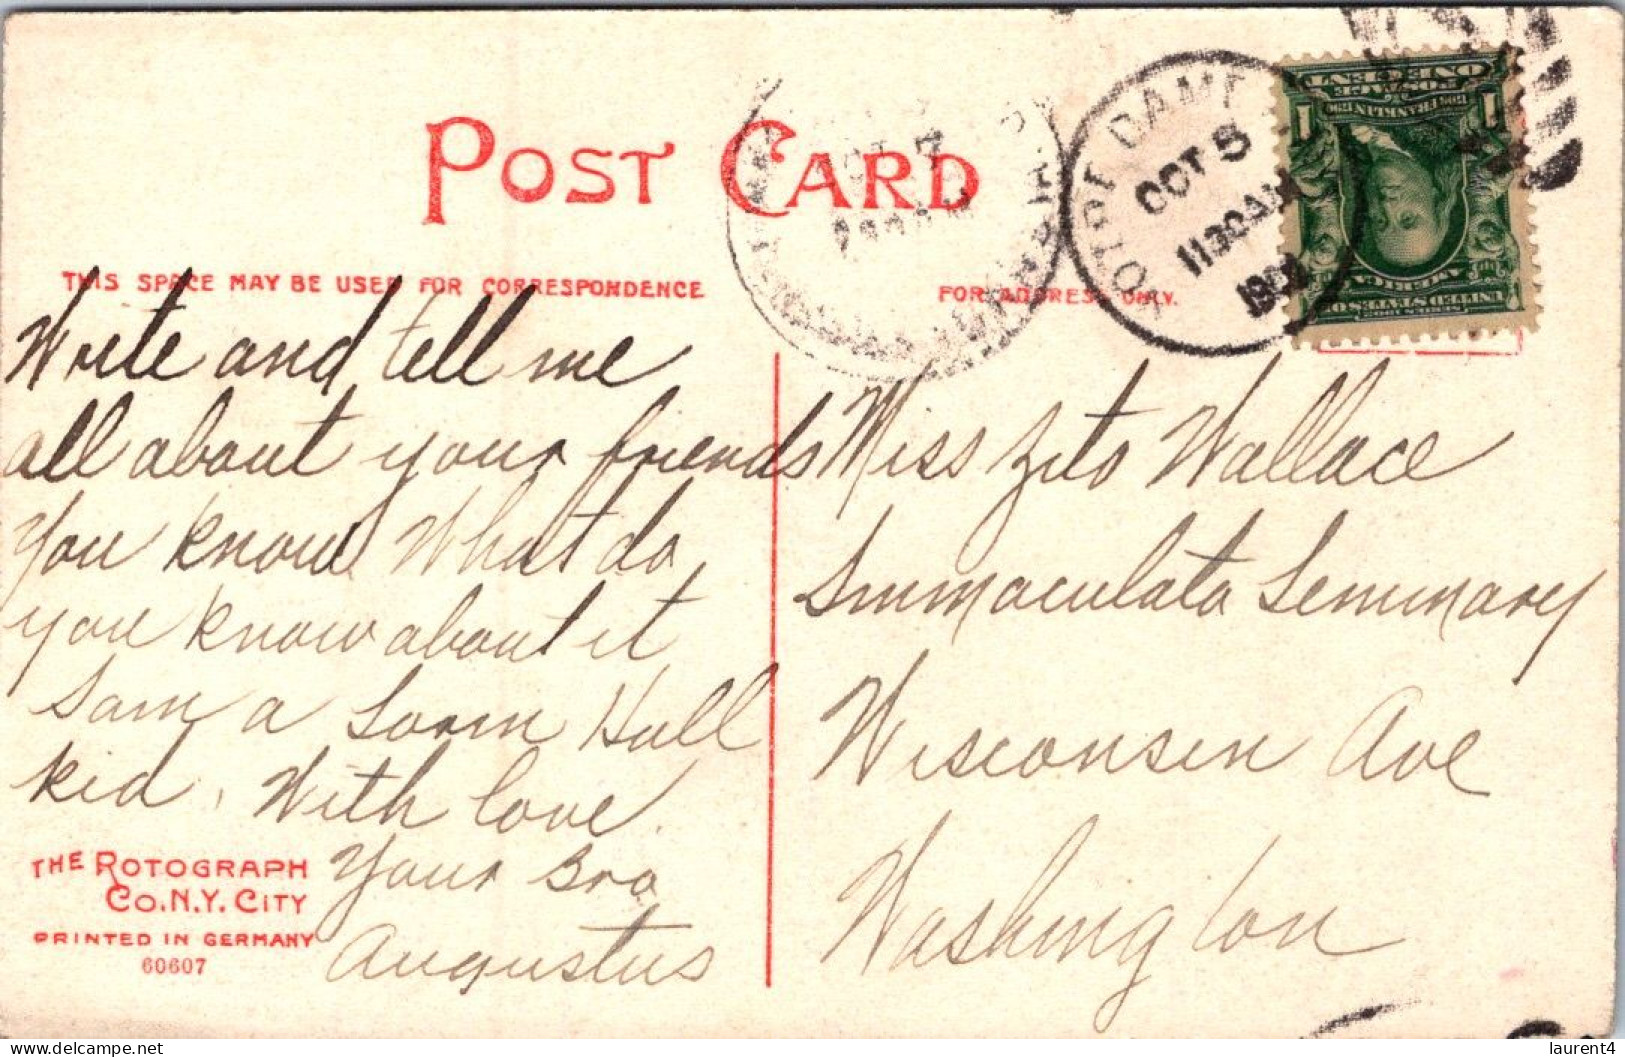 POST CARD
THIS SPACE MAY BE USED FOR CORRESPONDENCE
FOR ADDRESS ONLY.
NOTRE DAME
OCT 5
1130 AM
OCT 7
POSTAGE
ONE CENT
1 1
UNITED STATES OF
AMERICA
SERIES 1902
Write and tell me
all about your friends
you know What do
you know about it
I am a Sorin Hall
kid, With love
Your Bro
Augustus
Miss Zita Wallace
Immaculata Seminary
Wisconsin Ave
Washington
THE ROTOGRAPH
CO. N.Y. CITY
PRINTED IN GERMANY
60607
delcampe.net
laurent4